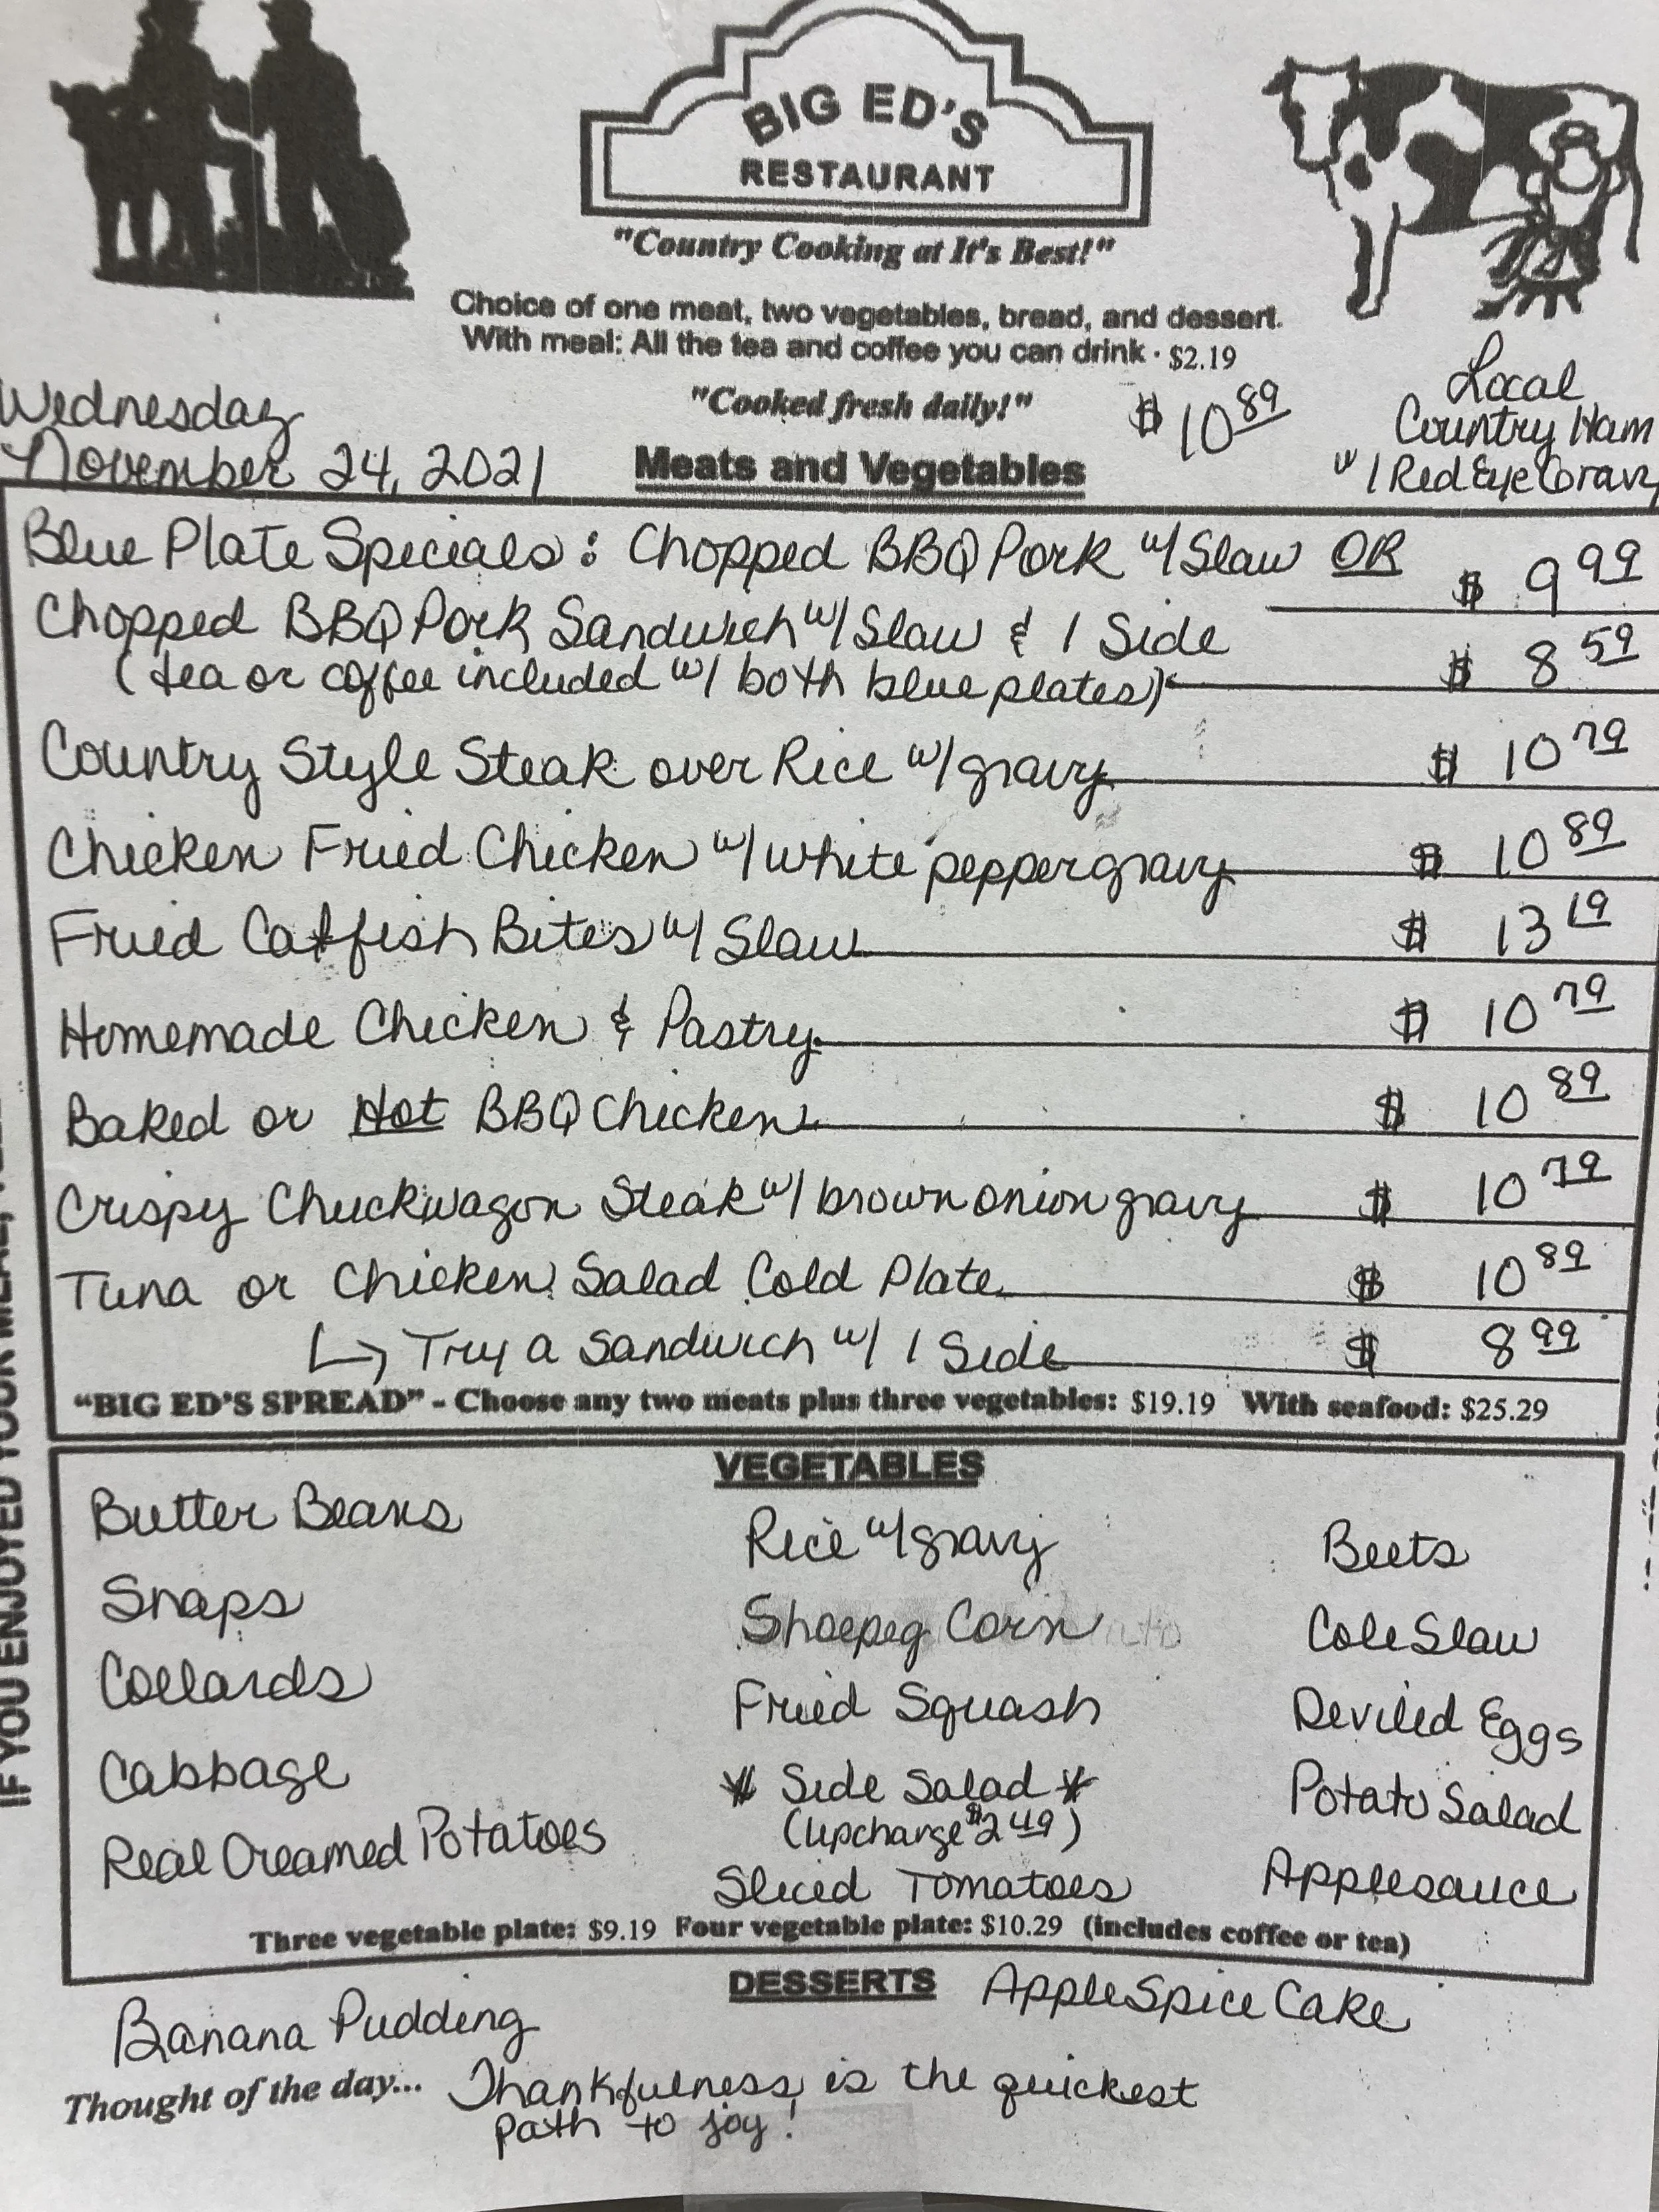 BIG ED'S
RESTAURANT
"Country Cooking at It's Best!"
Choice of one meat, two vegetables, bread, and dessert.
With meal: All the tea and coffee you can drink · $2.19
"Cooked fresh daily!"
Wednesday
November 24, 2021
Meats and Vegetables
$ 10 89
Local
Country Ham
w/ Red Eye Gravy
Blue Plate Specials: Chopped BBQ Pork w/ Slaw OR $ 9 99
Chopped BBQ Pork Sandwich w/ Slaw & 1 Side
(tea or coffee included w/ both blue plates) $ 8 59
Country Style Steak over Rice w/ gravy $ 10 79
Chicken Fried Chicken w/ white pepper gravy $ 10 89
Fried Catfish Bites w/ Slaw $ 13 19
Homemade Chicken & Pastry $ 10 79
Baked or Hot BBQ Chicken $ 10 89
Crispy Chuckwagon Steak w/ brown onion gravy $ 10 79
Tuna or Chicken Salad Cold Plate $ 10 89
↳ Try a Sandwich w/ 1 Side $ 8 99
"BIG ED'S SPREAD" - Choose any two meats plus three vegetables: $19.19 With seafood: $25.29
VEGETABLES
Butter Beans
Snaps
Collards
Cabbage
Real Creamed Potatoes
Rice w/ gravy
Shoepeg Corn
Fried Squash
* Side Salad *
(Upcharge $2 49)
Sliced Tomatoes
Beets
Cole Slaw
Deviled Eggs
Potato Salad
Applesauce
Three vegetable plate: $9.19 Four vegetable plate: $10.29 (includes coffee or tea)
DESSERTS
Banana Pudding
Apple Spice Cake
Thought of the day... Thankfulness is the quickest
path to joy!
IF YOU ENJOYED YOUR MEAL,